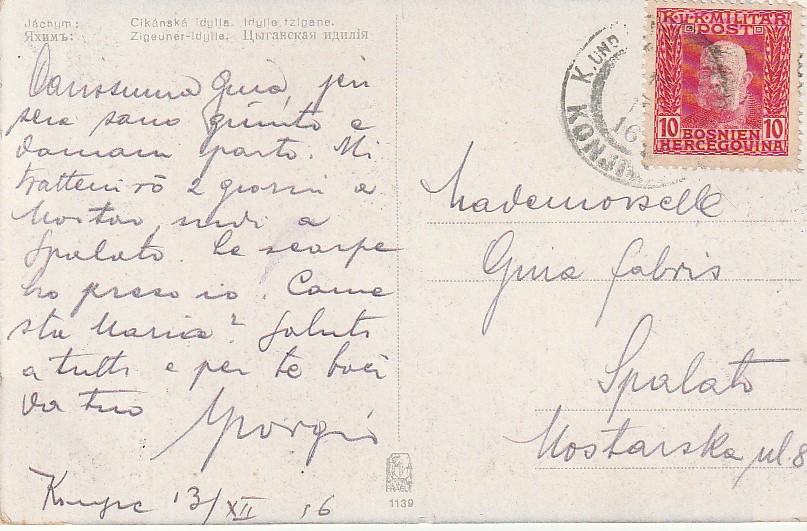 Jáchym: Cikánská idylla. Idylle tzigane.
Яхимъ: Zigeuner-Idylle. Цыганская идилія
Carissima Gina, jeri
sera sono giunto e
domani parto. Mi
tratterrò 2 giorni a
Mostar, indi a
Spalato. Le scarpe
ho preso io. Come
sta Maria? Saluti
a tutti e per te baci
da tuo Giorgio
13/XII 16
K.u.K. MILITÄR
POST
10 BOSNIEN 10
HERCEGOVINA
K. UND
16
Mademoiselle
Gina Fabris
Spalato
Mostarska ul. 8
PRAGUE
1139